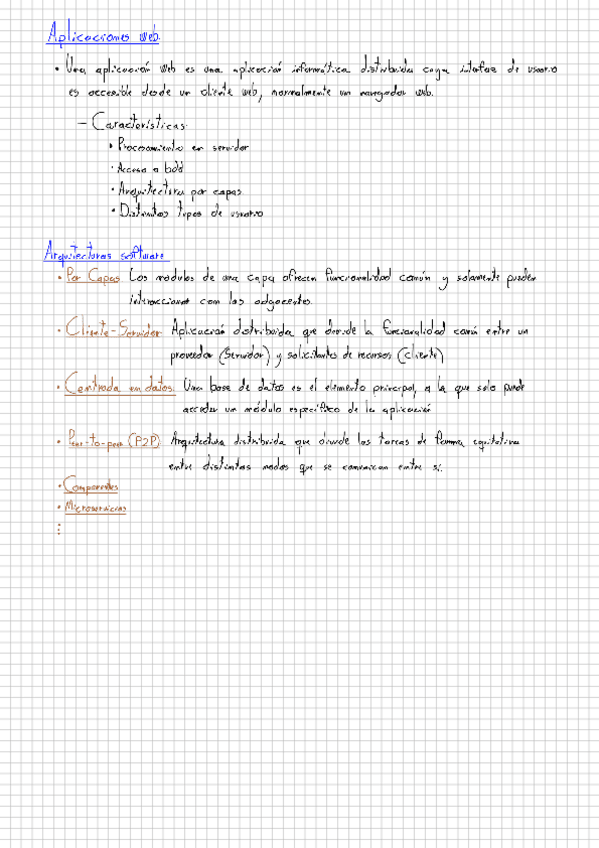 Aplicaciones web.
• Una aplicación web es una aplicación informática distribuida cuya interfaz de usuario
es accesible desde un cliente web, normalmente un navegador web.
– Características:
• Procesamiento en servidor
• Acceso a bdd
• Arquitectura por capas
• Distintos tipos de usuario
Arquitecturas software
• Por Capas: Los módulos de una capa ofrecen funcionalidad común y solamente pueden
interaccionar con los adyacentes.
• Cliente-Servidor: Aplicación distribuida que divide la funcionalidad común entre un
proveedor (Servidor) y solicitantes de recursos (cliente)
• Centrada en datos: Una base de datos es el elemento principal, a la que solo puede
acceder un módulo específico de la aplicación
• Peer-to-peer (P2P): Arquitectura distribuida que divide las tareas de forma equitativa
entre distintos nodos que se comunican entre sí.
• Componentes
• Microservicios
⋮